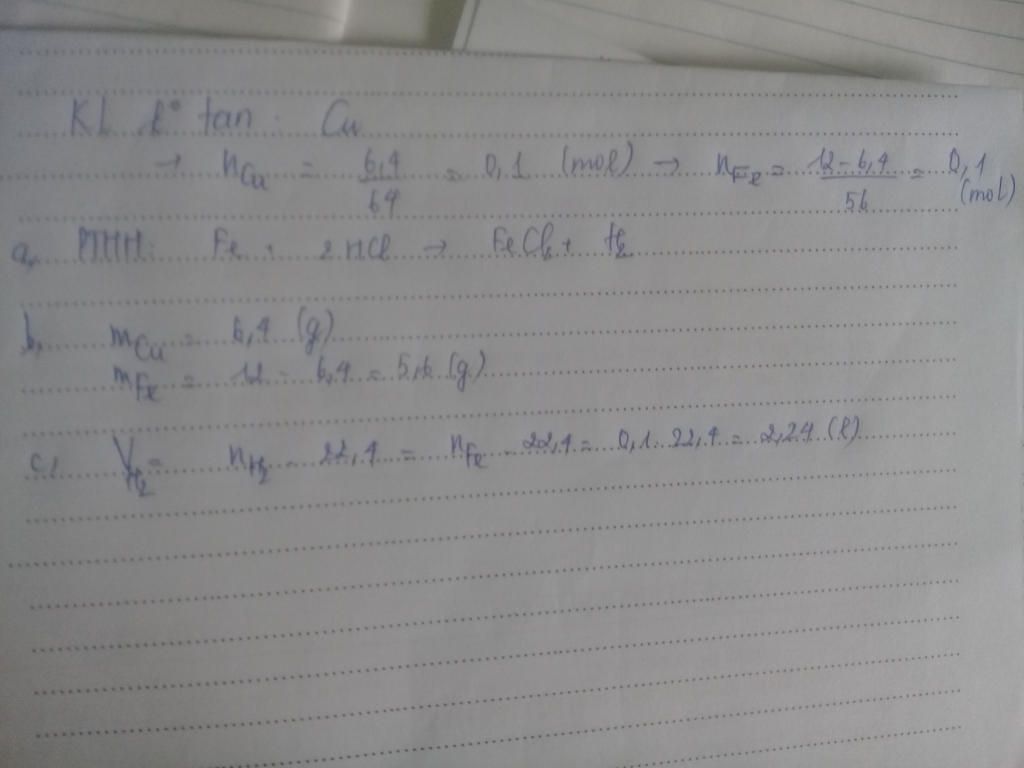 KL k° tan : Cu
→ nCu = 6,4/64 = 0,1 (mol) → nFe = 12-6,4/56 = 0,1 (mol)
a, PTHH: Fe + 2HCl → FeCl2 + H2
b, mCu = 6,4 (g)
mFe = 12 - 6,4 = 5,6 (g)
c, VH2 = nH2 . 22,4 = nFe . 22,4 = 0,1 . 22,4 = 2,24 (l)